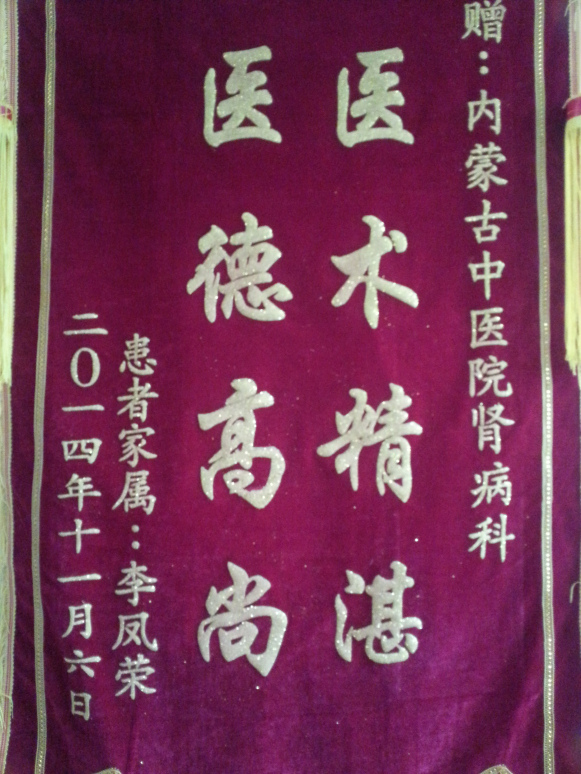 赠：内蒙古中医院肾病科
医术精湛
医德高尚
患者家属：李凤荣
二〇一四年十一月六日